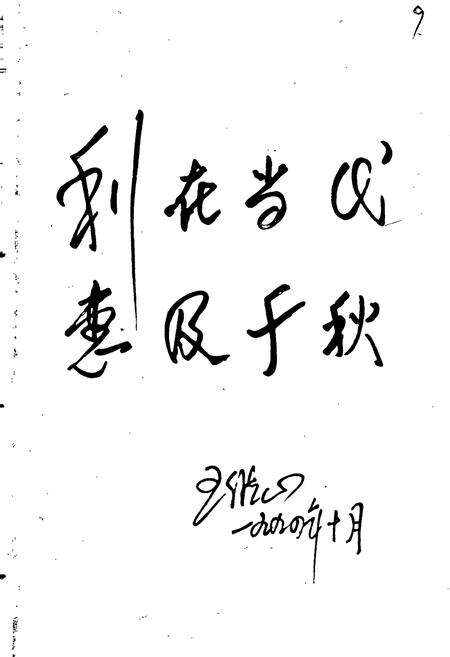 9
利在当代
惠及千秋
一九九〇年十月